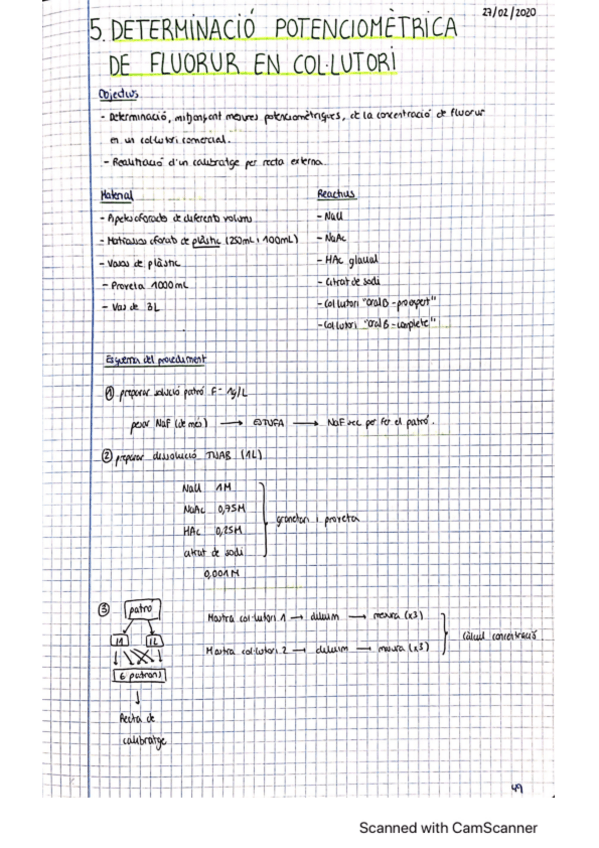 27/02/2020
5. DETERMINACIÓ POTENCIOMÈTRICA
DE FLUORUR EN COL·LUTORI
Objectius
- Determinació, mitjançant mesures potenciomètriques, de la concentració de fluorur
en un col·lutori comercial.
- Realització d'un calibratge per recta externa.
Material
- Pipetes aforades de diferents volums
- Matrassos aforats de plàstic (250mL i 100mL)
- Vasos de plàstic
- Proveta 1000mL
- Vas de 3L
Reactius
- NaCl
- NaAc
- HAc glacial
- Citrat de sodi
- Col·lutori "Oral B - pro expert"
- Col·lutori "Oral B - complete"
Esquema del procediment
① preparar solució patró F- 1g/L
pesar NaF (de més) → ESTUFA → NaF sec per fer el patró.
② preparar dissolució TISAB (1L)
NaCl 1M
NaAc 0,75M
HAc 0,25M
citrat de sodi
0,001M
granetari i proveta
③ patró
6 patrons
Recta de
calibratge
Mostra col·lutori 1 → diluïm → mesura (x3)
Mostra col·lutori 2 → diluïm → mesura (x3)
càlcul concentració
49
Scanned with CamScanner